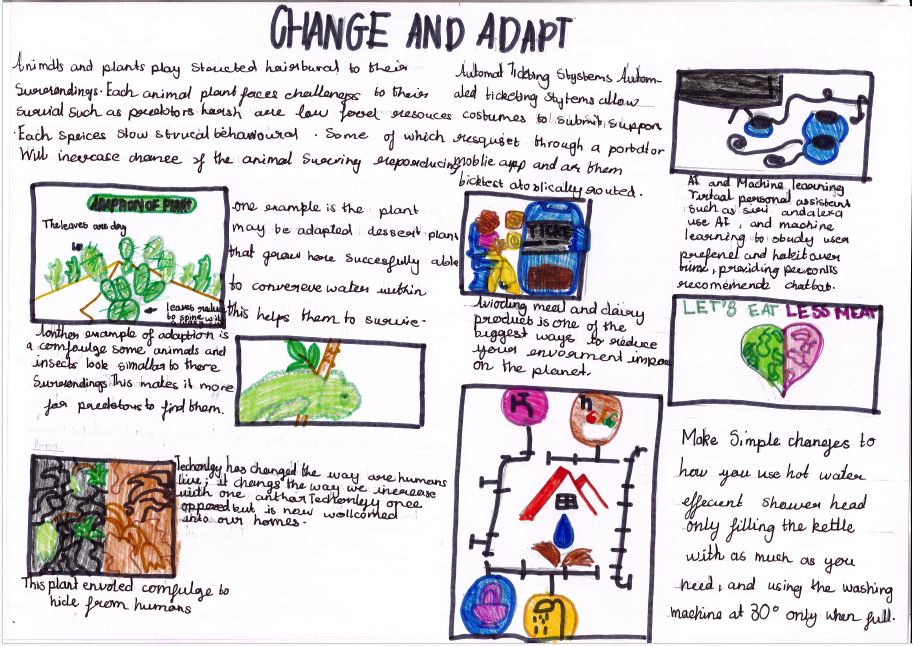 CHANGE AND ADAPT
Animals and plants play structed hairbural to their
Surrerendings. Each animal plant faces challenges to their
survial such as predotors harsh are low food resouces
Each speices slow strucal behavioural . Some of which
Will increase chance of the animal surerving reporoducing
ADAPTION OF PLANT
The leaves are dry
leaves reduce
to spine
one example is the plant
may be adapted dessert plant
that grow here succesfully able
to convereve water within
this helps them to survie.
Another example of adaption is
a comfoulge some animals and
insects look simallar to there
Surrerondings This makes it more
for predotous to find them.
Techonlgy has changed the way are humans
live; it changs the way we increase
with one anthar Techonley once
opposed but is now wellcomed
into our homes.
This plant envoled comfulge to
hide from humans
Automat Ticketing Stystems Autom-
aled ticketing stytems allow
costumes to submit suppon
resquiset through a portator
moblie app and are them
routed.
TICKE
Avioding meal and dairy
product is one of the
biggest ways to reduce
your envorment impac
on the planet.
AI and Machine learning
Virtual personal assistent
such as siri and alexa
use AI, and machine
learning to study user
prefenel and habit over
time, providing personlis
recomemende chatbot.
LET'S EAT LESS MEAT
Make Simple changes to
how you use hot water
effecent shower head
only filling the kettle
with as much as you
need, and using the washing
machine at 30° only when full.